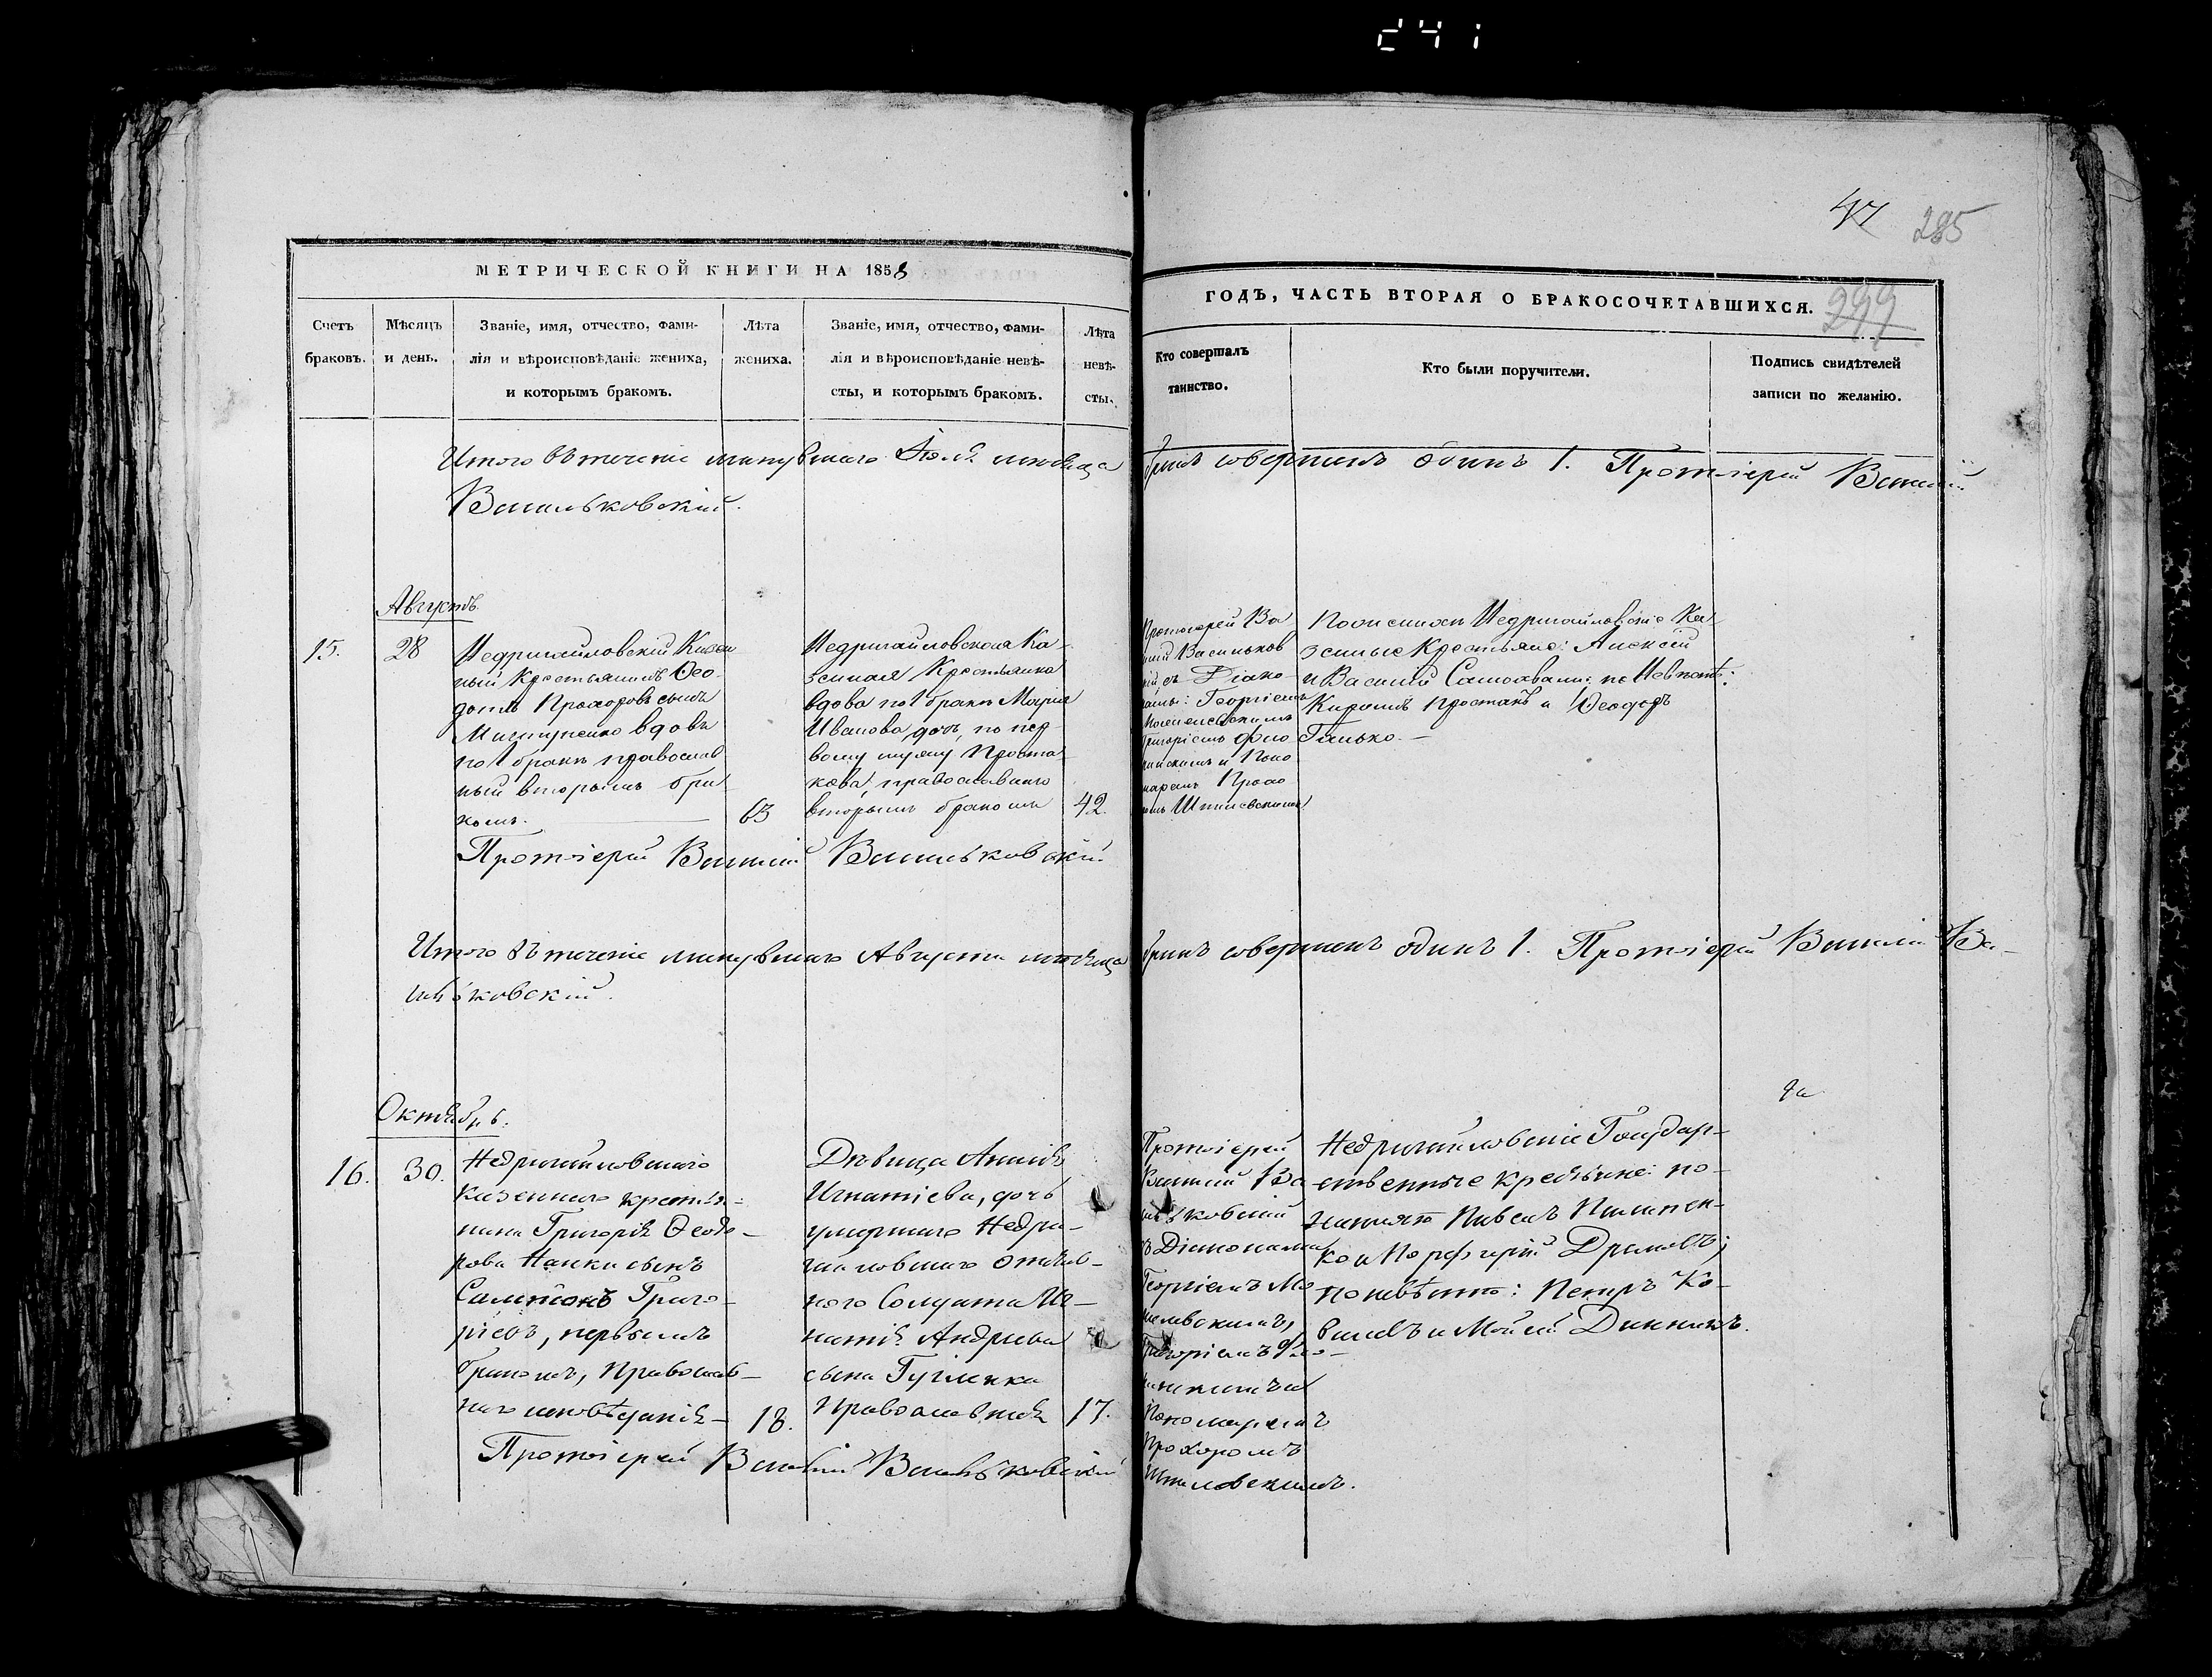 241
47 285
299
МЕТРИЧЕСКОЙ КНИГИ НА 1858
Счетъ
браковъ.
Мѣсяцъ
и день.
Званіе, имя, отчество, фами-
лія и вѣроисповѣданіе жениха,
и которымъ бракомъ.
Лѣта
жениха.
Званіе, имя, отчество, фами-
лія и вѣроисповѣданіе невѣ-
сты, и которымъ бракомъ.
Лѣта
невѣ-
сты.
ГОДЪ, ЧАСТЬ ВТОРАЯ О БРАКОСОЧЕТАВШИХСЯ.
Кто совершалъ
таинство.
Кто были поручители.
Подпись свидѣтелей
записи по желанію.
Итого въ теченіе минувшаго Іюля мѣсяца бракъ совершенъ одинъ 1. Протоіерей Василій
Васильковскій.
Августъ
15.
28
Недригайловскій Казен
ный Крестьянинъ Ѳео-
дотъ Прохоровъ сынъ
вдовъ
по 1 бракѣ православ
ный вторымъ бра
комъ.
63
Недригайловская Ка-
зенная Крестьянка
вдова по 1 бракѣ Марія
Иванова дочь, по пер
вому мужу Проста
кова, православная
вторымъ бракомъ
42
Протоіерей Ва
силій Васильков
скій съ Діако
нами: Георгіемъ
Григоріемъ
и Поно
маремъ Прохо
ромъ
По женихѣ Недригайловскіе Ка
зенные Крестьяне: Алексѣй
и Василій по Невѣстѣ:
Кириллъ Простакъ и Ѳеодоръ
Галько.—
Протоіерей Василій Васильковскій
Итого въ теченіе минувшаго Августа мѣсяца бракъ совершенъ одинъ 1. Протоіерей Василій Ва-
сильковскій.
Октябрь.
16.
30.
Недригайловскаго
казеннаго крестья-
нина Григорія Ѳеодо-
рова сынъ
Сампсонъ Григо-
рьевъ, первымъ
бракомъ, Православ-
наго исповѣданія—
18.
Дѣвица
Игнатіева, дочь
умершаго Недри-
гайловскаго отстав-
наго Солдата Иг-
натія Андреева
сына
Православная
17.
Протоіерей
Василій Ва
сильковскій
съ Діаконами
Георгіемъ Мо
Григоріемъ
Пономаремъ
Прохоромъ
Недригайловскіе Государ-
ственные крестьяне: по
женихѣ Павелъ Пилипен-
ко и Порфирій
по невѣстѣ: Петръ Ко-
и Моисей
Протоіерей Василій Васильковскій